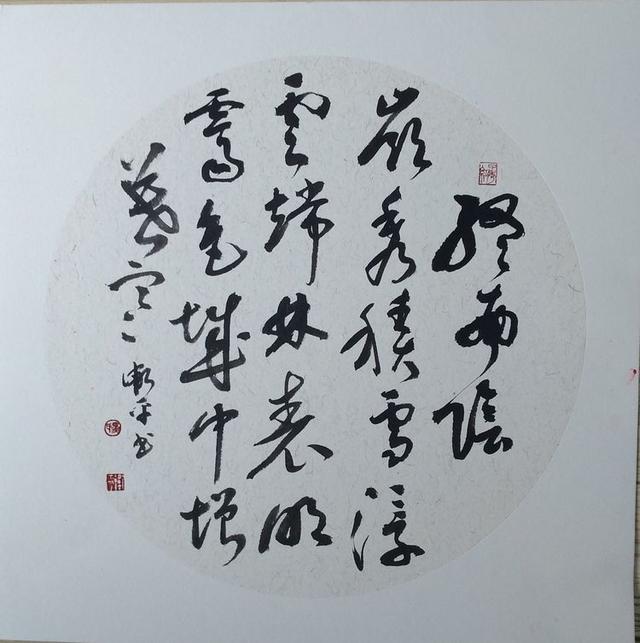 終南陰
嶺秀積雪浮
雲端林表明
霽色城中增
暮寒
平书